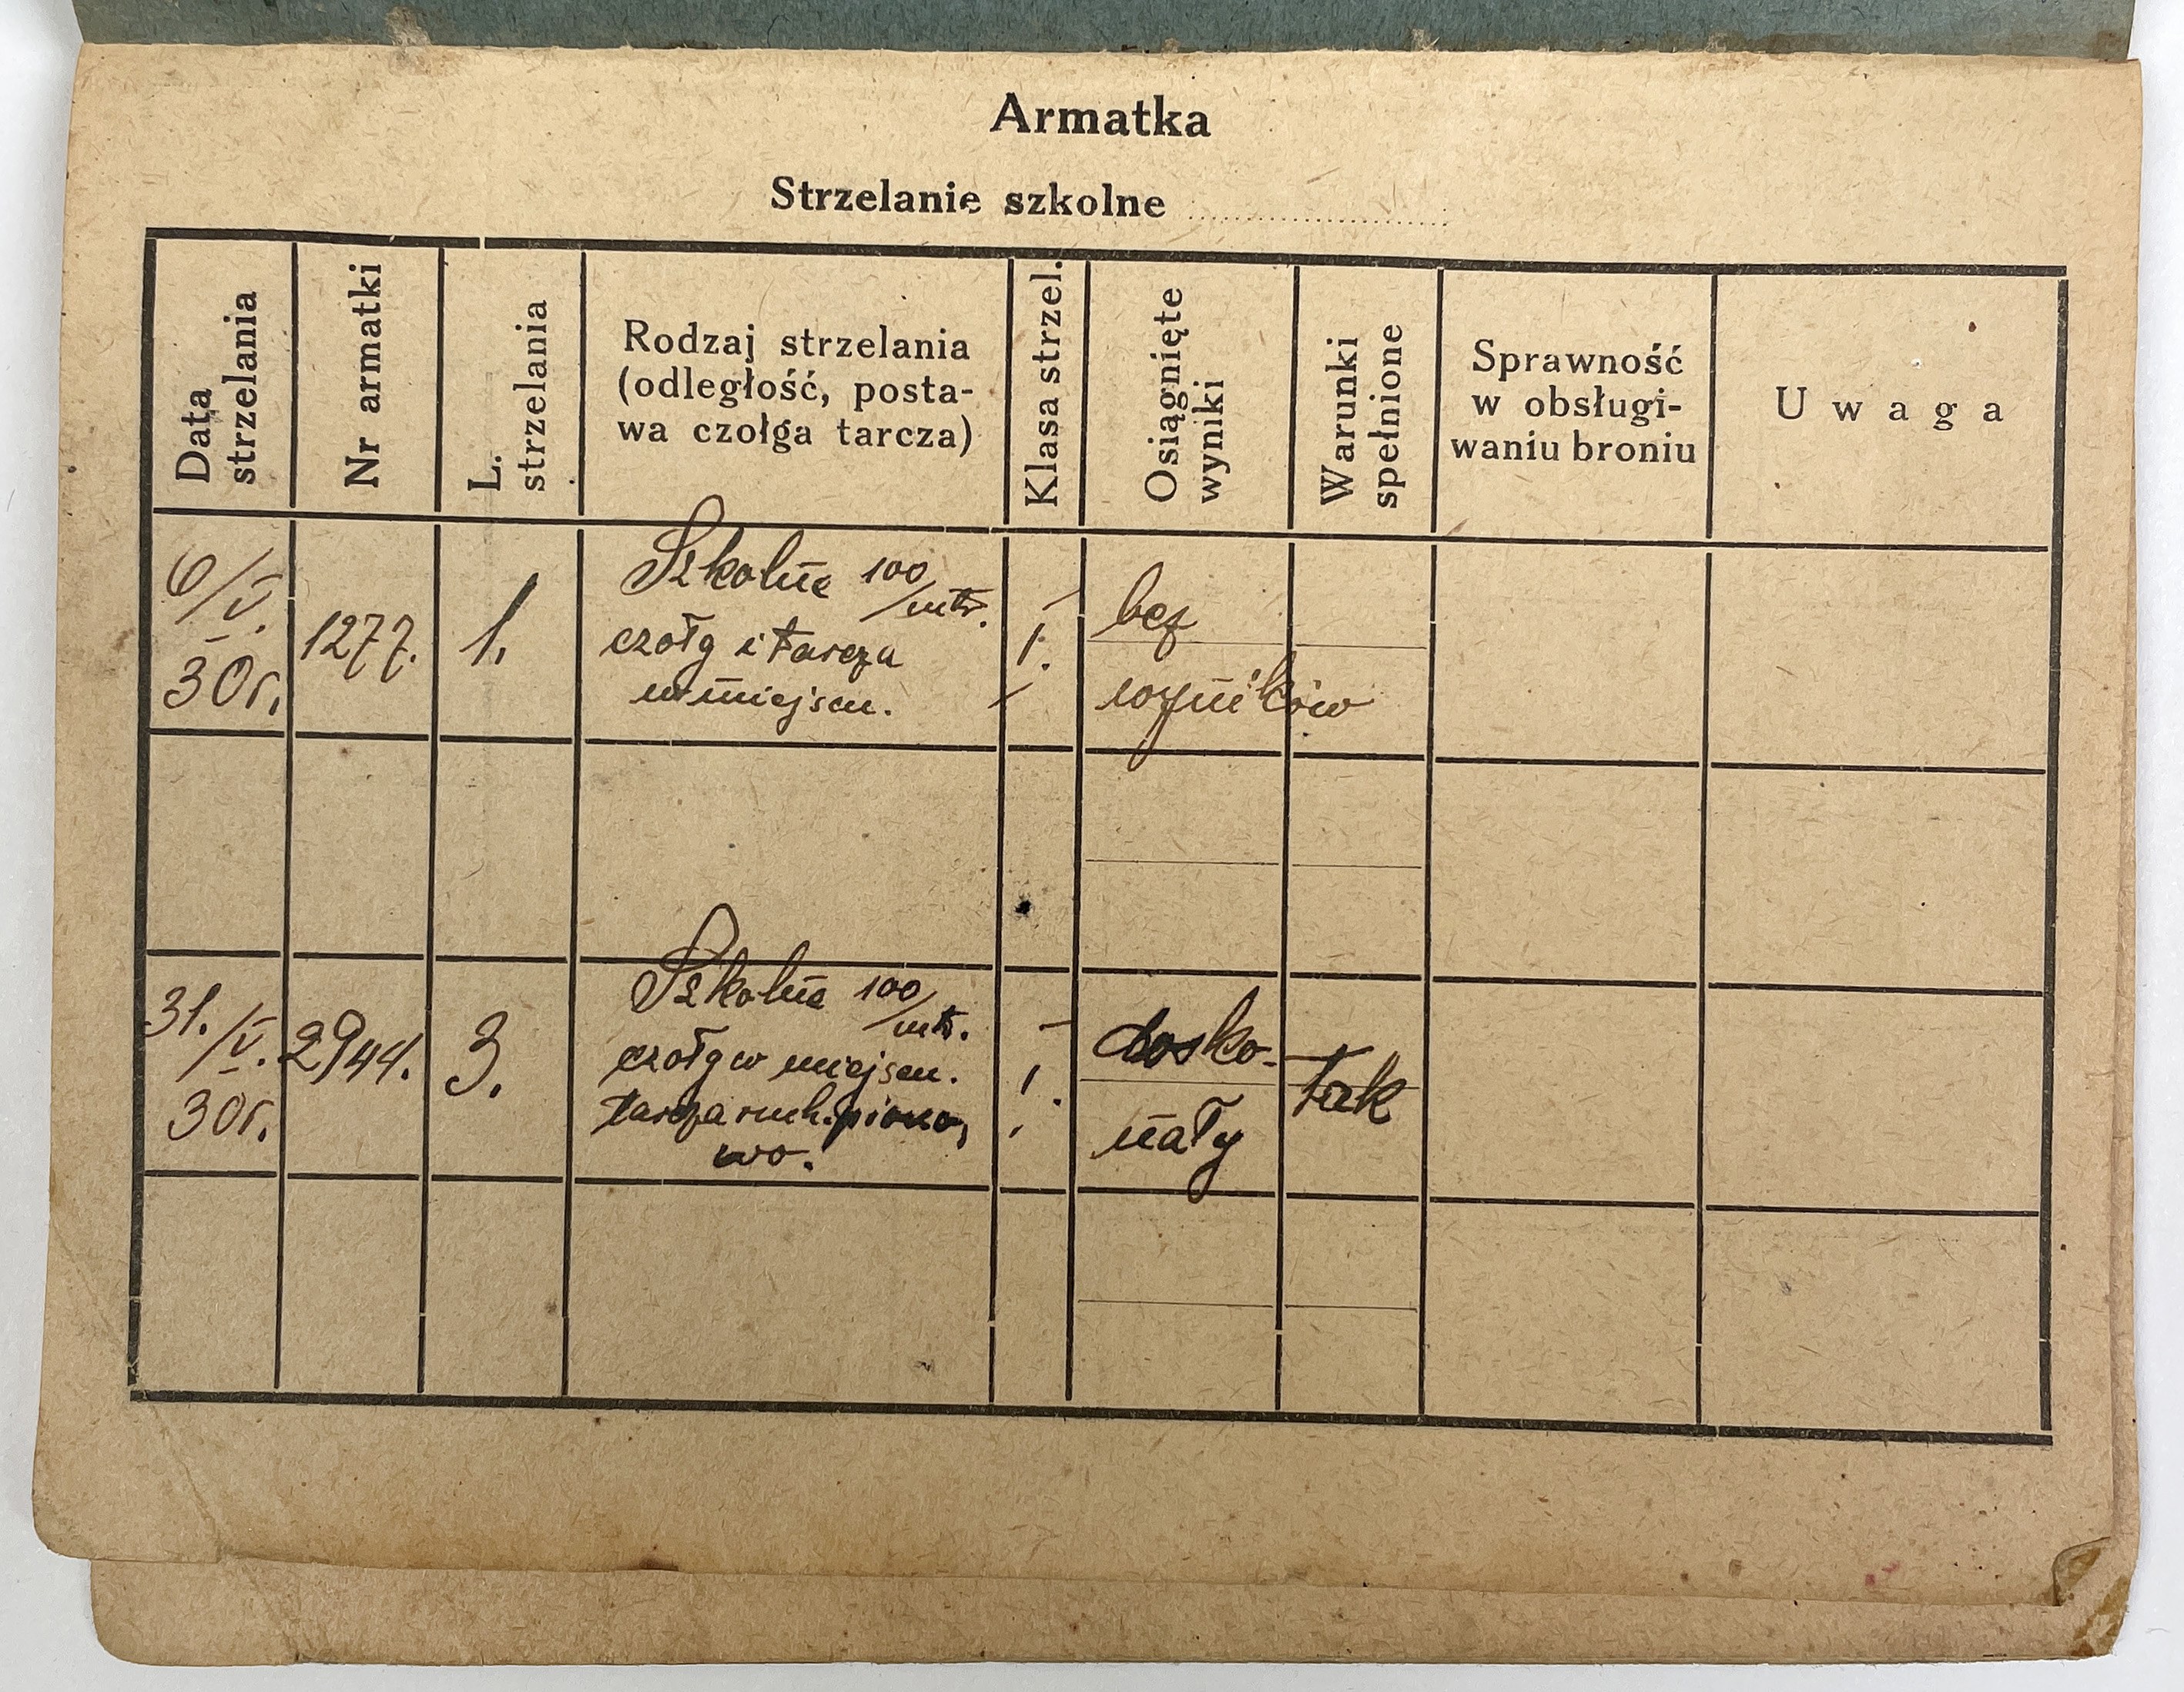 Armatka
Strzelanie szkolne
Data
strzelania
Nr armatki
L.
strzelania
Rodzaj strzelania
(odległość, posta-
wa czołga tarcza)
Klasa strzel.
Osiągnięte
wyniki
Warunki
spełnione
Sprawność
w obsługi-
waniu broniu
Uwaga
6/V.
30r.
1277.
1.
Szkolne 100/mtr.
czołg i tarcza
w miejscu.
I.
bez
wyników
31./V.
30r.
2944.
3.
Szkolne 100/mtr.
czołg w miejscu.
tarcza ruch. piono,
wo.
I.
dosko-
nały
tak